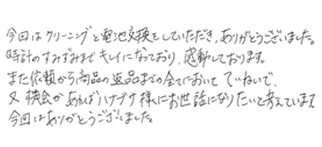 今回はクリーニングと電池交換をしていただき、ありがとうございました。
時計のすみずみまでキレイになっており、感動しております。
また依頼から商品の返品までの全てにおいて ていねいで、
又 機会があればハナブサ様にお世話になりたいと考えています
今回はありがとうございました。